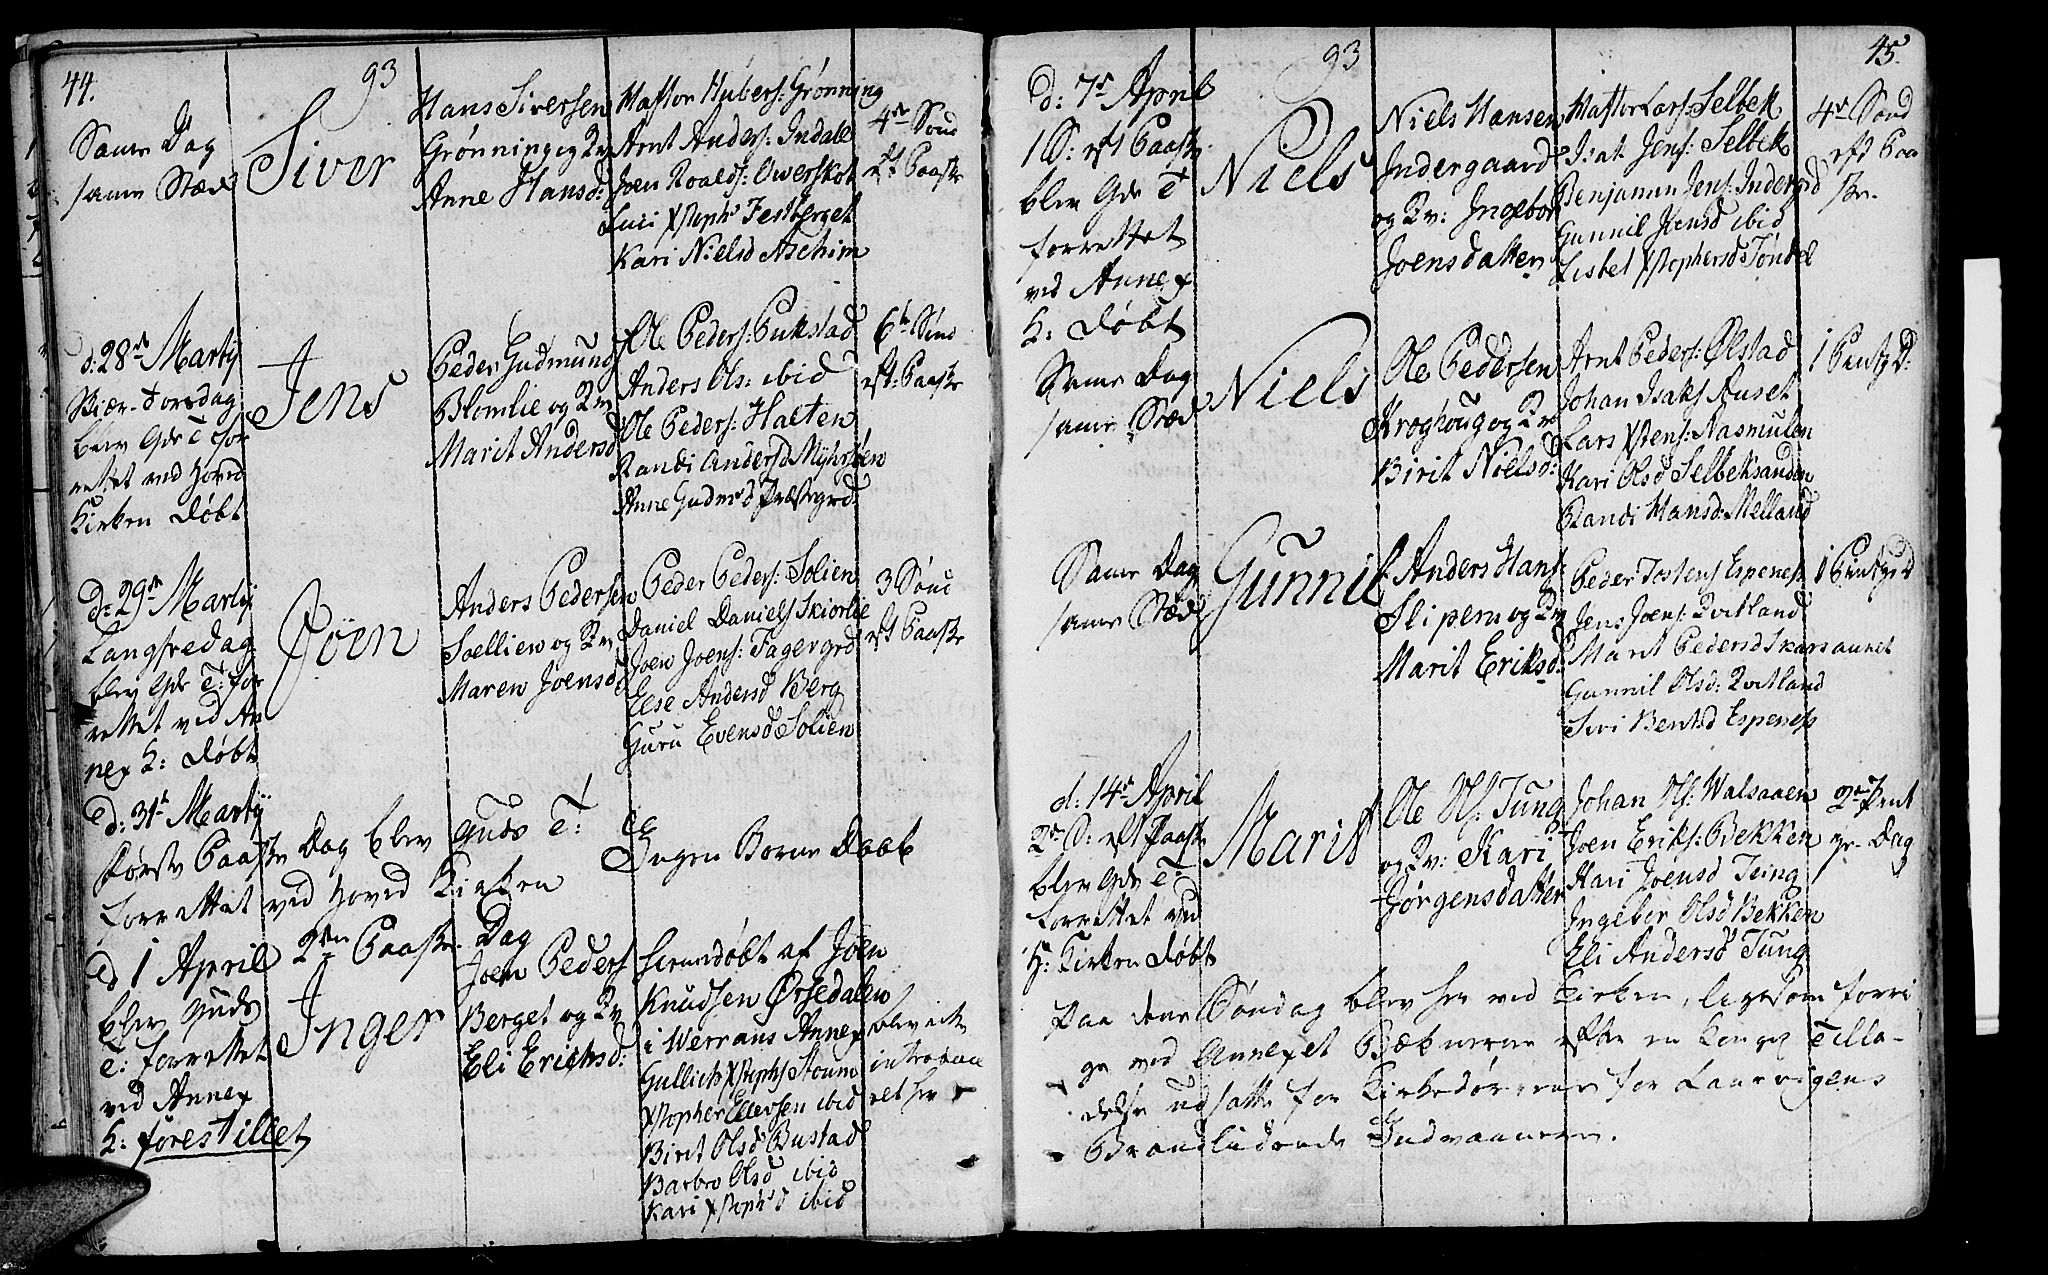 44.
93
Same Dag
same Stæd
Siver
Hans Siversen
Grønning og Kv
Anne Hansd:
Mastor Hubers: Grønning
Arnt Anders: Indale
Joen Roalds: Owerskot
Luci Xstoph: Festberget
Kari Nielsd Aschim
4de Sønd
eft Paaske
d: 28de Martij
Skiær-torsdag
blev Gds T for
rettet ved Hoved
Kirken døbt
Jens
Peder Gudmund
Blomlie og Kv
Marit Andersd
Ole Peders: Pukstad
Anders Ols: ibid
Ole Peders: Halten
Randi Andersd Myhr
Anne Gudmd Præstegrd
6te Sønd
eft: Paaske
D: 29de Martij
Langfredag
blev Gds T: for
rettet ved An
nex K: døbt
Joen
Anders Pedersen
Soellien og Kv
Maren Joensd
Peder Peders: Solien
Daniel Daniels Skiorlie
Joen Joens: Fagergrd
Else Andersd Berg
Guru Evensd Solien
3 Sønd
eft Paaske
D: 31te Martij
første Paaske Dag blev Guds T:
forrettet ved Hoved Kirken
Ingen Børne Daab
d 1 April 2den Paaske Dag
blev Guds
T: forrettet
ved Annex
K: forestillet
Inger
Joen Peders
Berget og Kv
Eli Erichsd:
hiemedøbt af Joen
Knudsen Ørsedalen
i Werrans Annex
Gullich Xstophs Stoum
Xstopher Ellevsen ibid
Birit Olsd Bustad
Barbro Olsd ibid
Kari Xstophsd ibid
blev icke
introducer
et her
93
45.
D: 7de April
1 S: eft Paaske
blev Gds T
forrettet
ved Annex
K: døbt
Niels
Niels Hansen
Indergaard
og Kv: Ingebor
Joensdatter
Mastor Lars: Selbek
Jens: Selbek
Benjamin Jens: Indergrd
Gunnil Joensd ibid
Lisbet Xstophersd Tøndel
4de Sønd
eft Paa
ske.
Same Dag
same Stæd
Niels
Ole Pedersen
Kroghoug og Kv
Birit Nielsd:
Arnt Peders: Ølstad
Johan Isaks Auset
Lars Xstens: Rasmulen
Kari Olsd Selbeksanden
Randi Hansd: Melland
1 Pintz D:
Same Dag
same Stæd
Gunnil
Anders Hans:
Slipern og Kv
Marit Eriksd:
Peder Tostens Espenes
Jens Joens: Kvitland
Marit Pedersd Skarsaunet
Gunnil Olsd: Kvitland
Siri Bentsd Espenes
1 Pintz D
d: 14de April
2de S: eft Paaske
blev Gds T
forrettet ved
H: Kirken døbt
Marit
Ole Ols: Tung
og Kv: Kari
Jørgensdatter
Johan Ols: Walsaaen
Joen Eriks: Bekken
Kari Joensd Teing
Ingebor Olsd Bekken
Eli Andersd Tung
2den Pint
ze-Dag
Paa dene Søndag blev her ved Kirken, ligesom forri
ge ved Annexet Bækkenerne efter en Kongl Tilla-
delse udsatte for Kirkedørrerne for Laurvigens
Brandlidende Indvaanere.